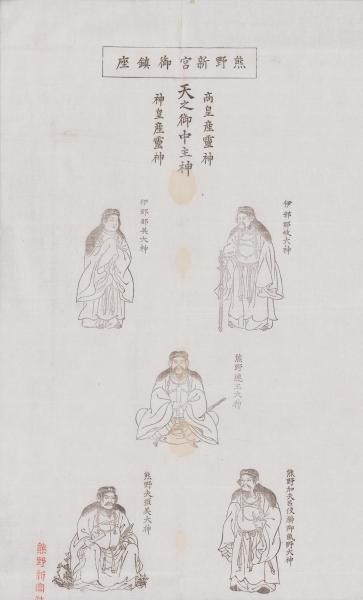 熊野新宮御鎮座
高皇産靈神
天之御中主神
神皇産靈神
伊邪那岐大神
伊邪那美大神
熊野速玉大神
熊野加夫呂伎櫛御氣野大神
熊野夫須美大神
熊野新宮